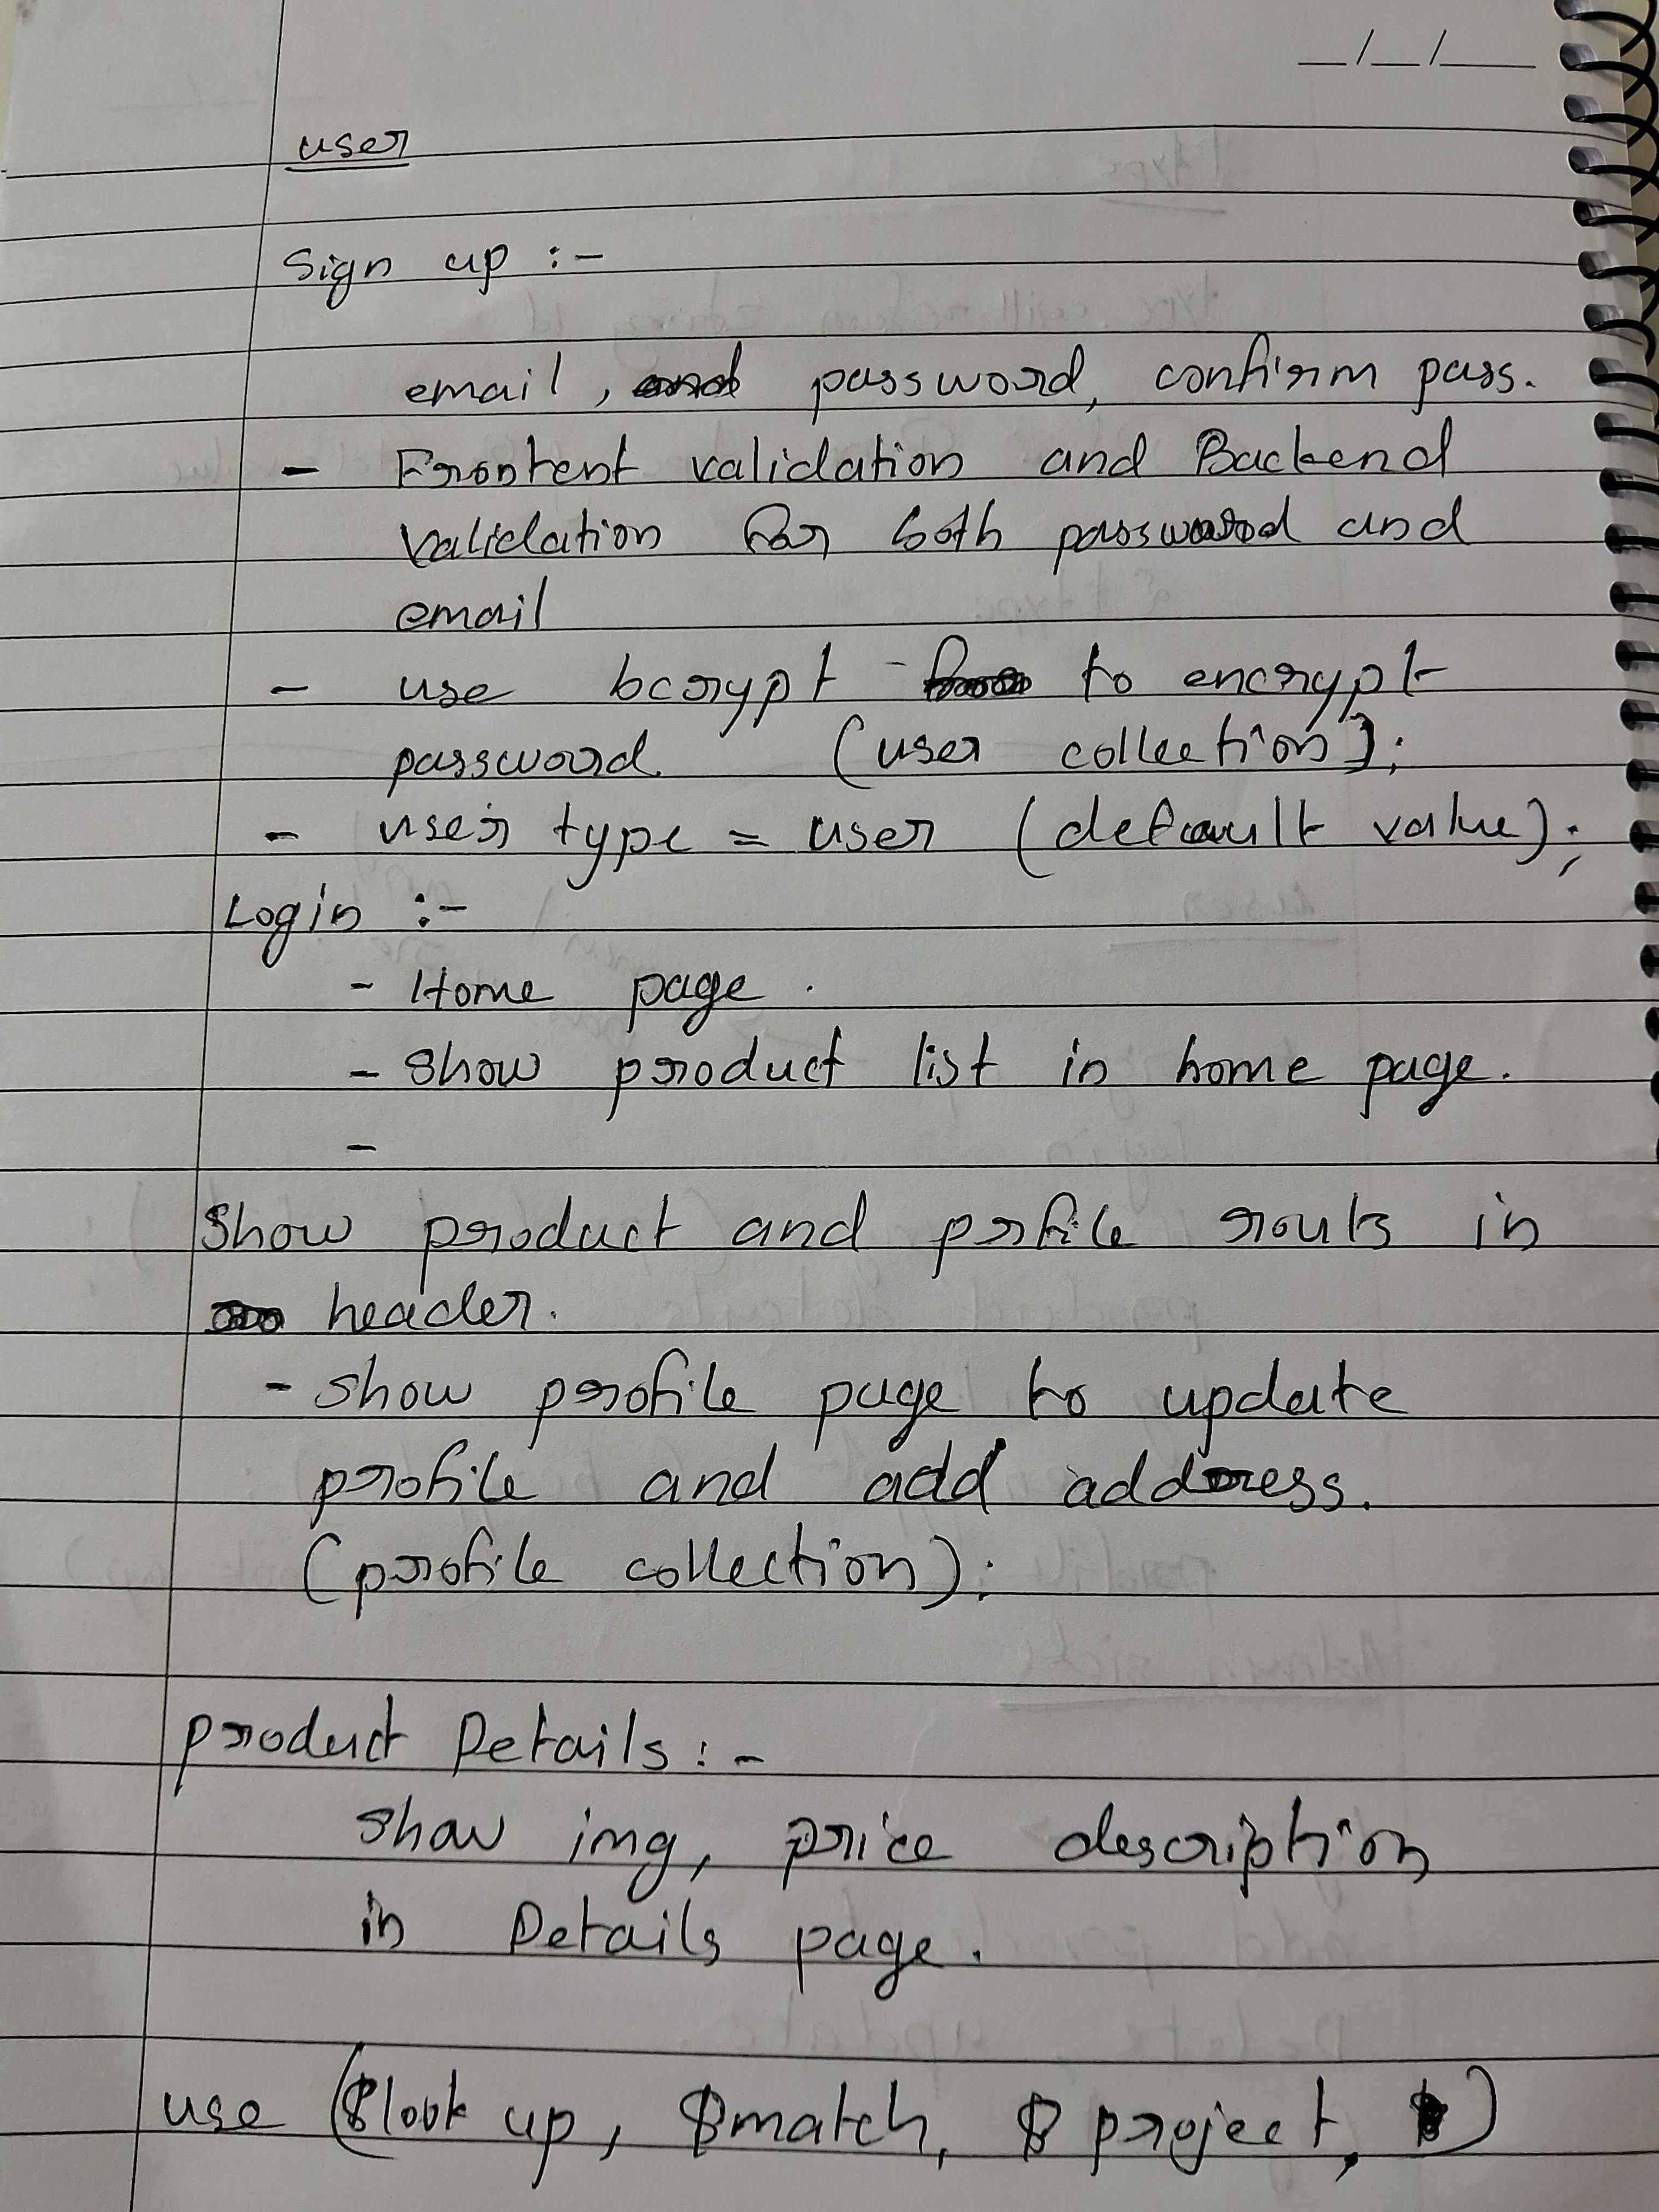 __/__/____
user
Sign up :-
email, and password, confirm pass.
- Frontent validation and Backend
validation for both password and
email
- use bcrypt to encrypt
password. (user collection);
- user type = user (default value);
Login :-
- Home page.
- show product list in home page.
-
Show product and profile routs in
header.
- show profile page to update
profile and add address.
(profile collection);
product Details :-
show img, price description
in Details page.
use ($look up, $match, $project, $)